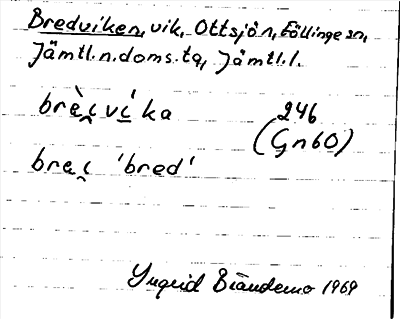 Bredviken, vik, Ottsjön, Föllinge sn,
Jämtl.n.doms.tg, Jämtl.l.
bræ̀i̯vi̲ka
246
(Gn60)
bræi̯ 'bred'
Ingrid Brändemo 1969